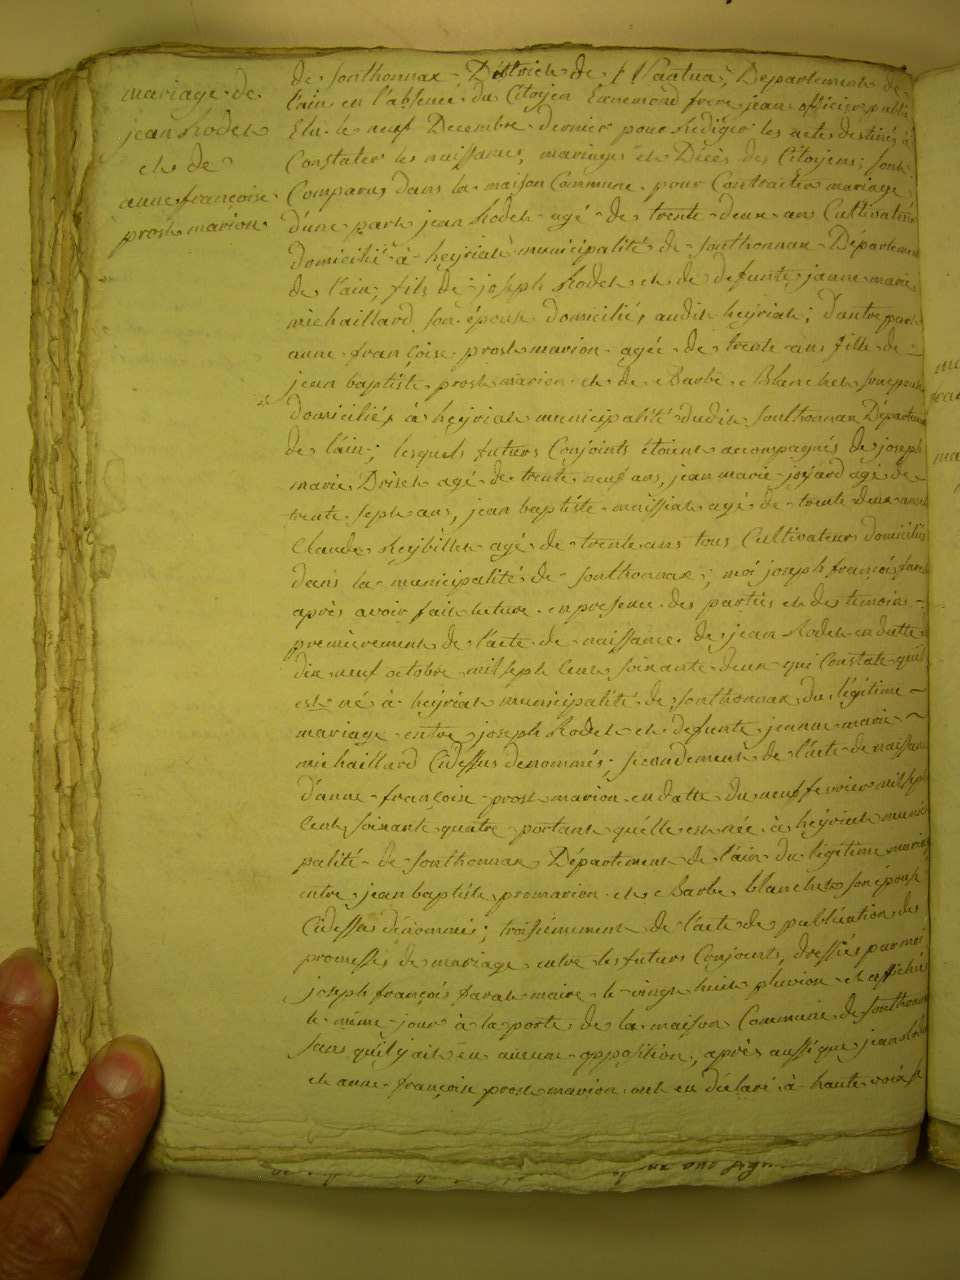 mariage de
jean Rodet
et de
anne françoise
prost marion
de Sonthonnax District de Nantua, Departement de
l'ain en l'absence du Citoyen Ennemond frere jean officier public
Elu le neuf Decembre dernier pour Rédiger les actes destinés à
Constater les naissances, mariages et Décès des Citoyens; sont
Comparus dans la maison Commune pour Contracter mariage
d'une part jean Rodet agé de trente deux ans Cultivateur
domicilié à heÿriat municipalité de Sonthonnax Département
de l'ain, fils de joseph Rodet et de defunte jeanne marie
michaillard son épouse domiciliés audit heÿriat; D'autre part
anne françoise prost marion agée de trente ans fille de
jean baptiste prost marion et de Barbe Blanchet son epouse
domiciliés à heÿriat municipalité dudit Sonthonnax Département
de l'ain; lesquels futurs Conjoints étoient accompagnés de joseph
marie Driset agé de trente neuf ans, jean marie joÿard agé de
trente sept ans, jean baptiste maissiat agé de trente deux ans et
Claude Reÿbillet agé de trente ans tous Cultivateurs domiciliés
dans la municipalité de Sonthonnax; moi joseph françois farat
après avoir fait lecture en presence des parties et des temoins
premierement de l'acte de naissance de jean Rodet en datte
dix neuf octobre mil sept Cent soixante deux qui Constate qu'il
est né à heÿriat municipalité de Sonthonnax du légitime
mariage entre joseph Rodet et defunte jeanne marie
michaillard Cidessus denommés; secondement de l'acte de naissance
d'anne françoise prost marion en datte du neuf fevrier mil sept
Cent soixante quatre portant qu'elle est née à heÿriat munici
palité de Sonthonnax Département de l'ain du légitime mariage
entre jean baptiste promarion et Barbe blanchet son épouse
Cidessus dénommés; troisiemement de l'acte de publication de
promesses de mariage entre les futurs Conjoints, dressés par moi
joseph françois farat maire le vingt huit pluviose et affiché
le même jour à la porte de la maison Commune de Sonthonnax
sans qu'il ÿ ait eu aucune opposition, après aussi que jean Rodet
et anne françoise prost marion ont eu déclaré à haute voix se